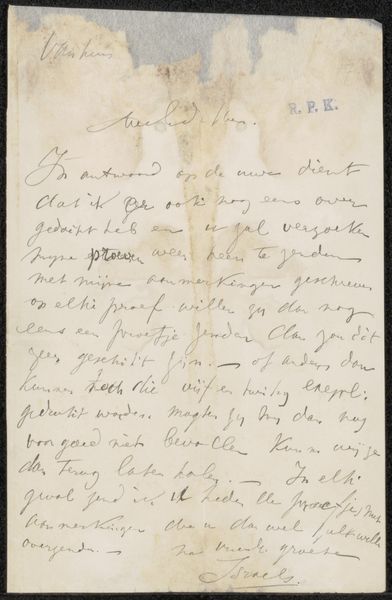 R. P. K.
In antwoord op de uwe dient
dat ik er ook nog eens over
gedacht heb en u zal verzoeken
mijne proeven weer heen te zenden
met mijne aanmerkingen geschreven
op elke proef willen zij dan nog
eens een proefje zenden dan zou dit
zeer geschikt zijn. — of anders dan
kunnen toch die vijf en twintig exempl.
gedrukt worden. mogten zij mij dan nog
voor goed niet bevallen kunnen wij ze
dan terug laten halen. — In elk
geval zend ik u heden de proefjes met
aanmerkingen die u dan wel zult willen
overzenden —
na vriendl. groete
Israels.